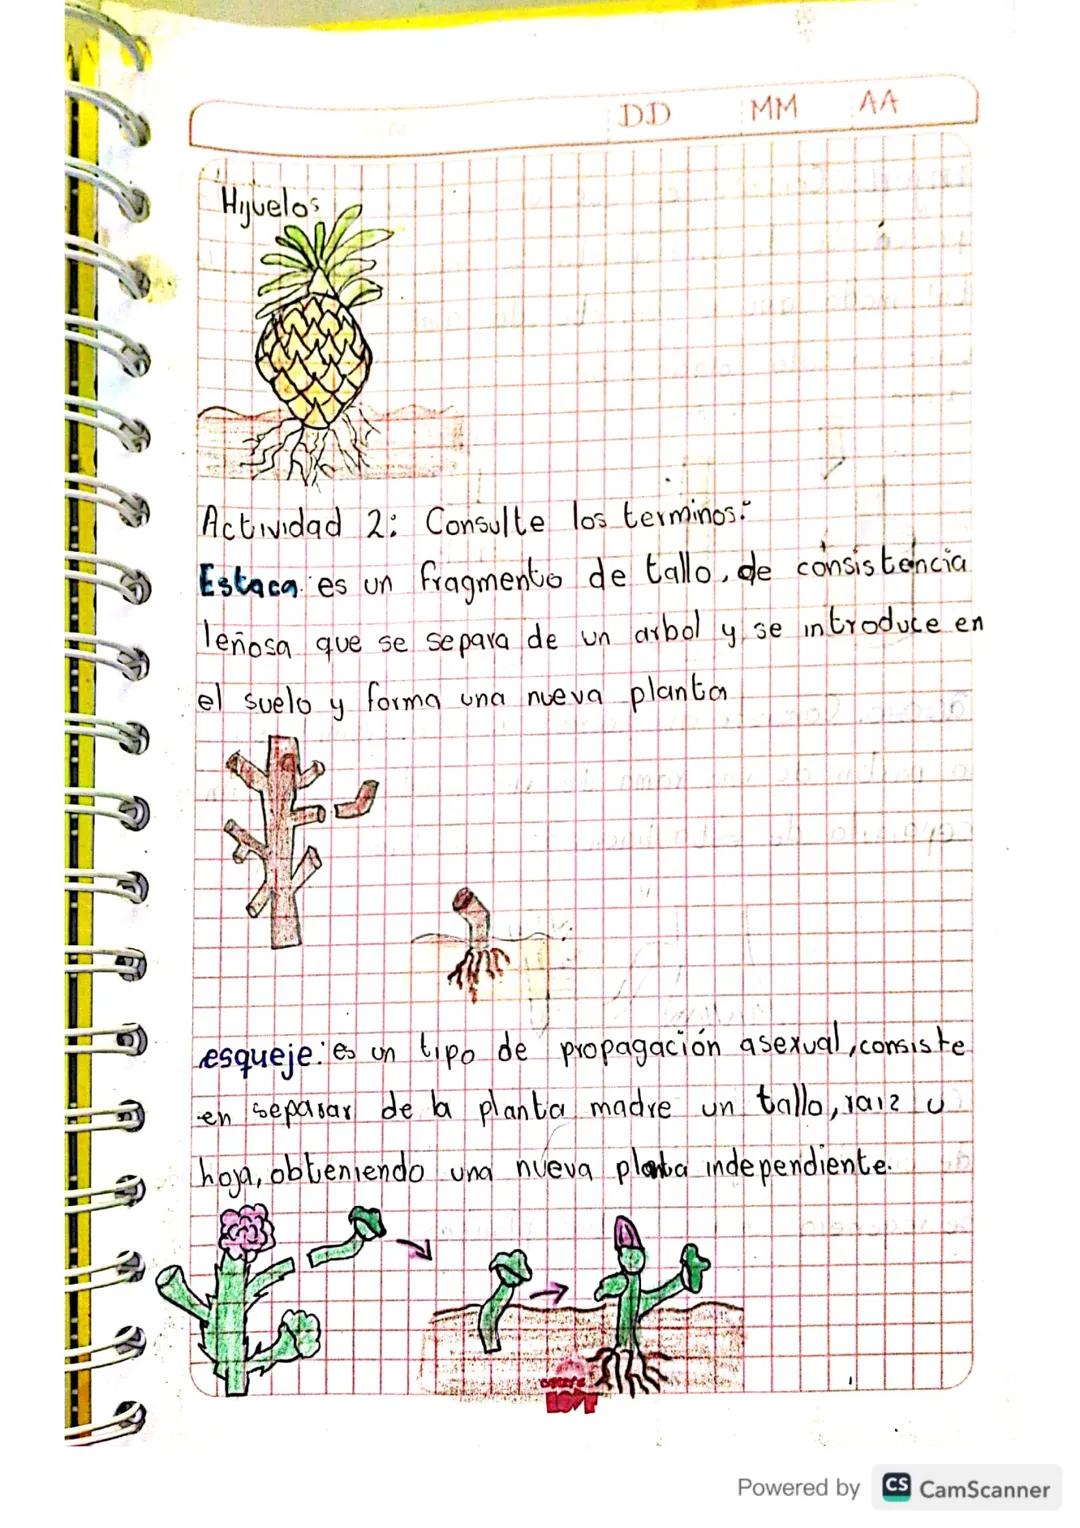 DD MM AA
Hijuelos
Actividad 2: Consulte los terminos:
Estaca: es un fragmento de tallo, de consistencia
leñosa que se separa de un arbol y se introduce en
el suelo y forma una nueva planta
esqueje: es un tipo de propagación asexual, consiste
en separar de la planta madre un tallo, raiz u
hoja, obteniendo una nueva planta independiente.
Powered by CS CamScanner